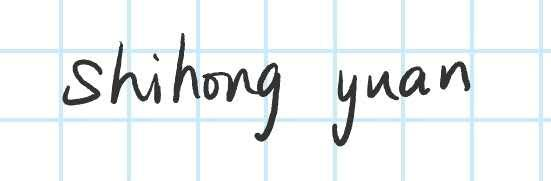 shihong yuan